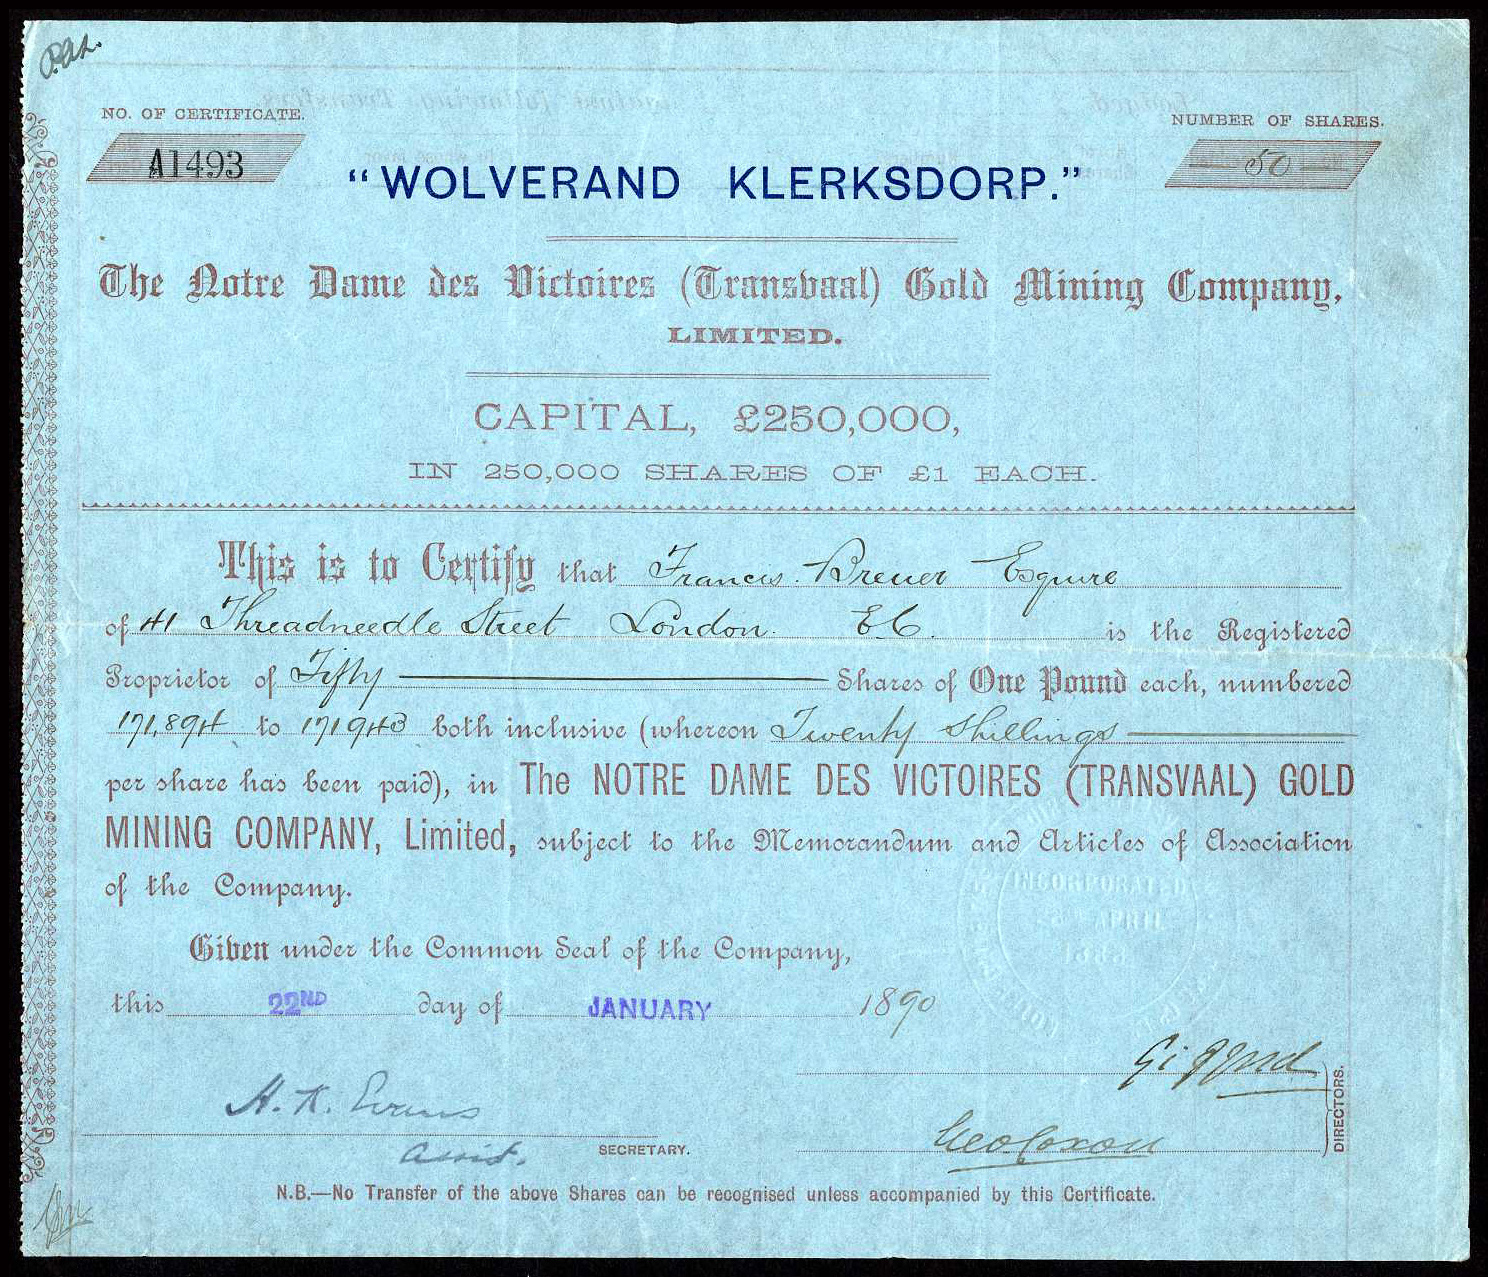 NO. OF CERTIFICATE.
NUMBER OF SHARES.
A1493
50
"WOLVERAND KLERKSDORP."
The Notre Dame des Victoires (Transvaal) Gold Mining Company,
LIMITED.
CAPITAL, £250,000,
IN 250,000 SHARES OF £1 EACH.
This is to Certify that Francis Breuer Esquire
of 41 Threadneedle Street London. E.C. is the Registered
Proprietor of Fifty Shares of One Pound each, numbered
171,894 to 171943 both inclusive (whereon Twenty Shillings
per share has been paid), in The NOTRE DAME DES VICTOIRES (TRANSVAAL) GOLD
MINING COMPANY, Limited, subject to the Memorandum and Articles of Association
of the Company.
INCORPORATED
APRIL
Given under the Common Seal of the Company,
this 22ND day of JANUARY 1890
H. K. Evans
Assist. SECRETARY.
Gifford
Geo Coxon
DIRECTORS.
N.B.—No Transfer of the above Shares can be recognised unless accompanied by this Certificate.